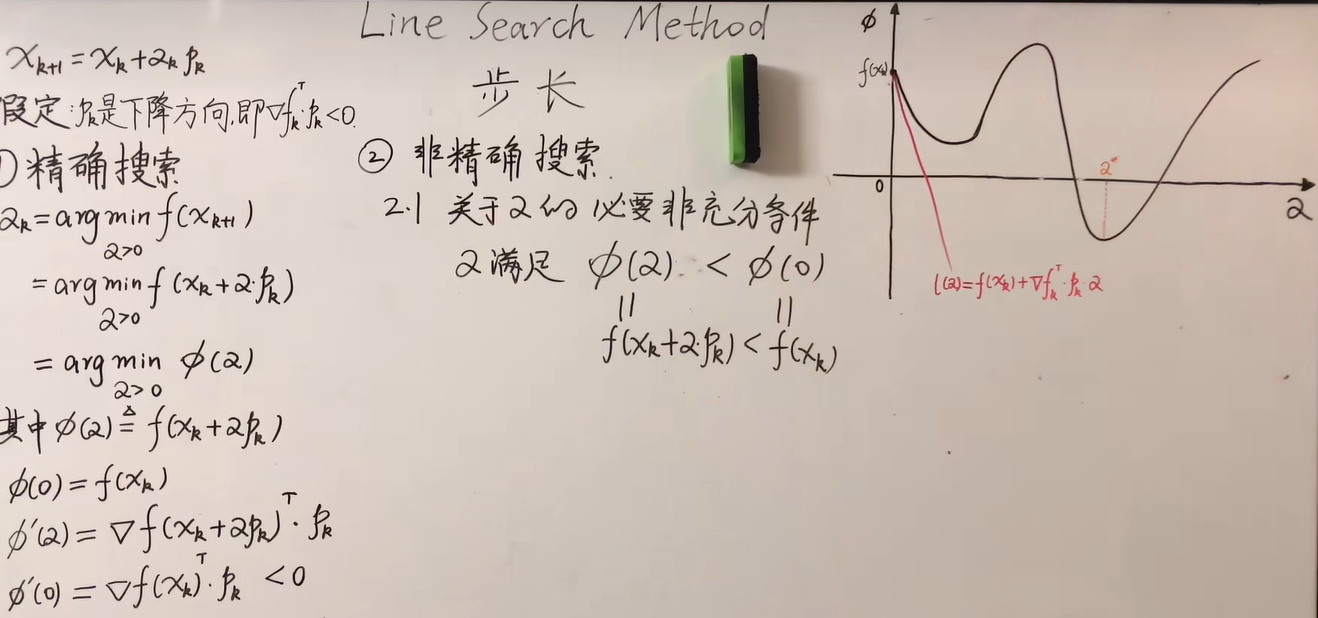 Line Search Method
步长
x_{k+1} = x_k + α_k p_k
假定:p_k是下降方向,即∇f_k^T·p_k<0.
① 精确搜索
α_k = argmin_{α>0} f(x_{k+1})
= argmin_{α>0} f(x_k+α·p_k)
= argmin_{α>0} ϕ(α)
其中 ϕ(α) ≜ f(x_k+αp_k)
ϕ(0) = f(x_k)
ϕ'(α) = ∇f(x_k+αp_k)^T·p_k
ϕ'(0) = ∇f(x_k)^T·p_k <0
② 非精确搜索.
2.1 关于α的必要非充分条件
α满足 ϕ(α) < ϕ(0)
|| ||
f(x_k+α·p_k) < f(x_k)
ϕ
f(x_k)
0
α*
α
l(α)=f(x_k)+∇f_k^T·p_k·α